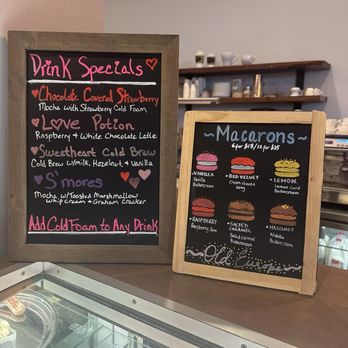 Drink Specials
Chocolate Covered Strawberry
Mocha with Strawberry Cold Foam
Love Potion
Raspberry & White Chocolate Latte
Sweetheart Cold Brew
Cold Brew w/milk, Hazelnut & Vanilla
S'mores
Mocha w/Toasted Marshmallow
Whip Cream & Graham Cracker
Add Cold Foam to Any Drink
~Macarons~
6 for $18/12 for $35
VANILLA
Vanilla
Buttercream
RED VELVET
Cream cheese
LEMON
Lemon Curd
Buttercream
RASPBERRY
Raspberry Jam
SALTED
CARAMEL
Salted caramel
Buttercream
HAZELNUT
Nutella
Buttercream
Old Europe